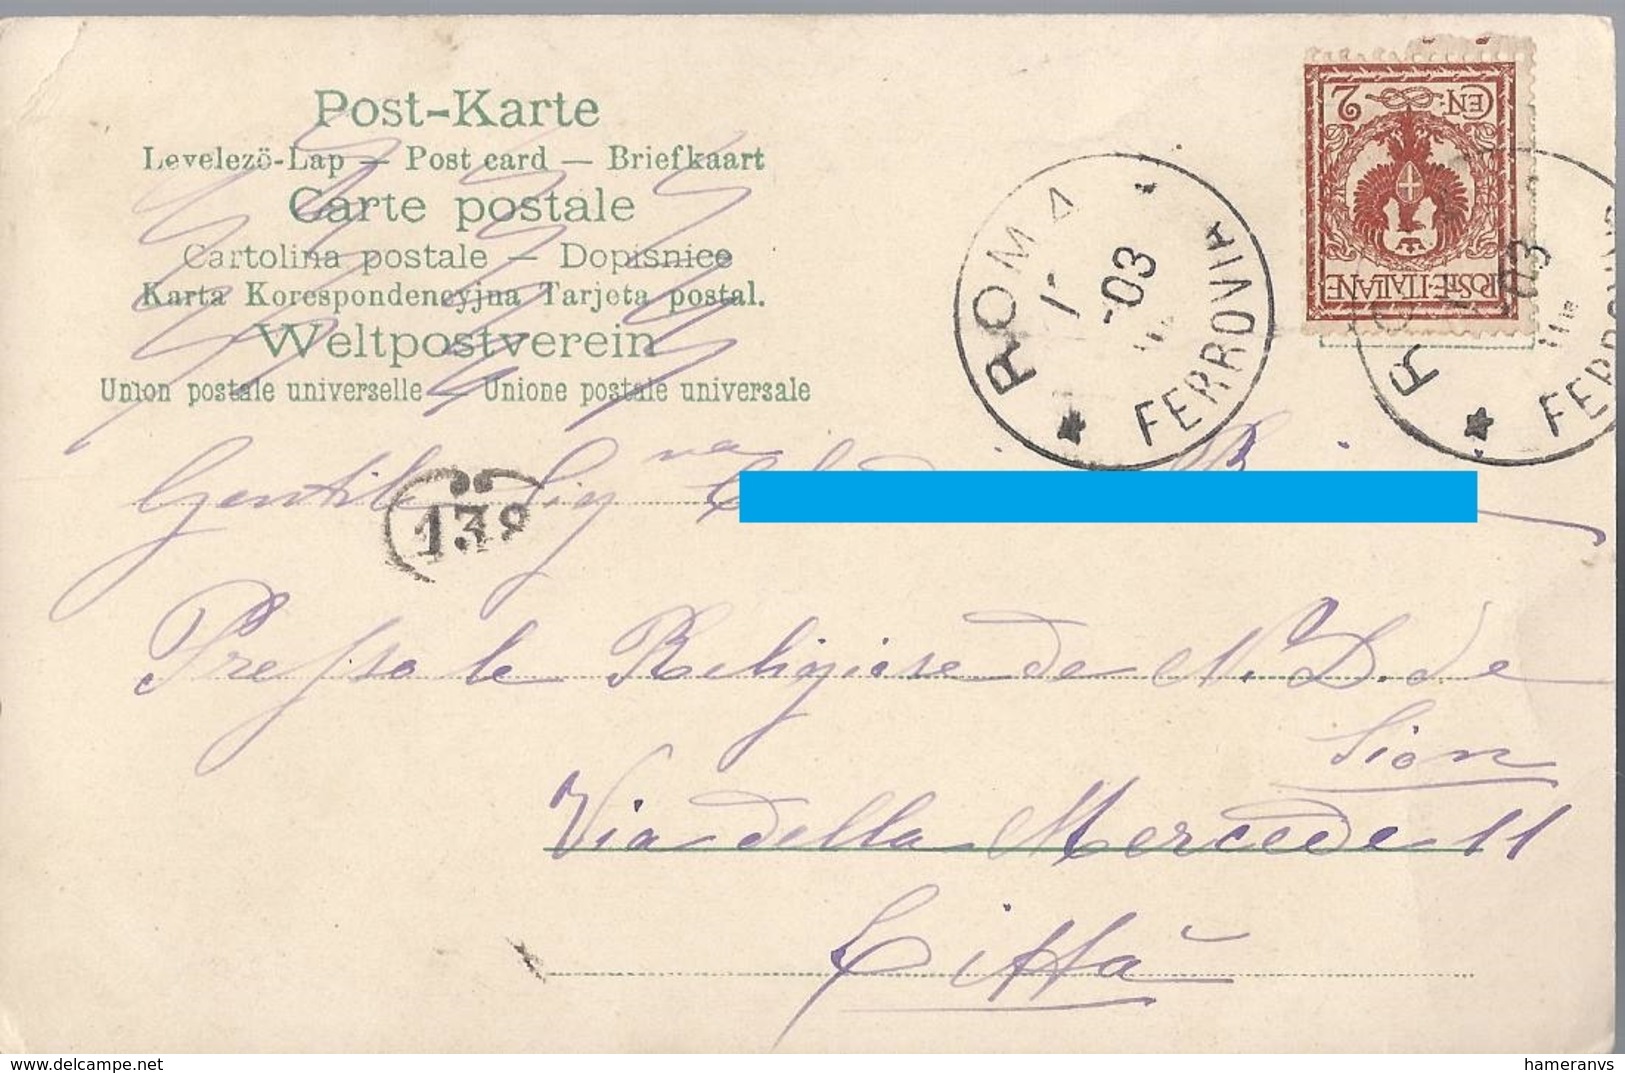 Post-Karte
Levelezö-Lap — Post card — Briefkaart
Carte postale
Cartolina postale — Dopisnice
Karta Korespondencyjna Tarjeta postal.
Weltpostverein
Union postale universelle Unione postale universale
CEN. 2
POSTE·ITALIANE
ROMA
-03
FERROVIA
-03
139
Gentile Signa
Presso le Religiose de N. D. de
Sion
Via della Mercede 11
Città
hameranvs